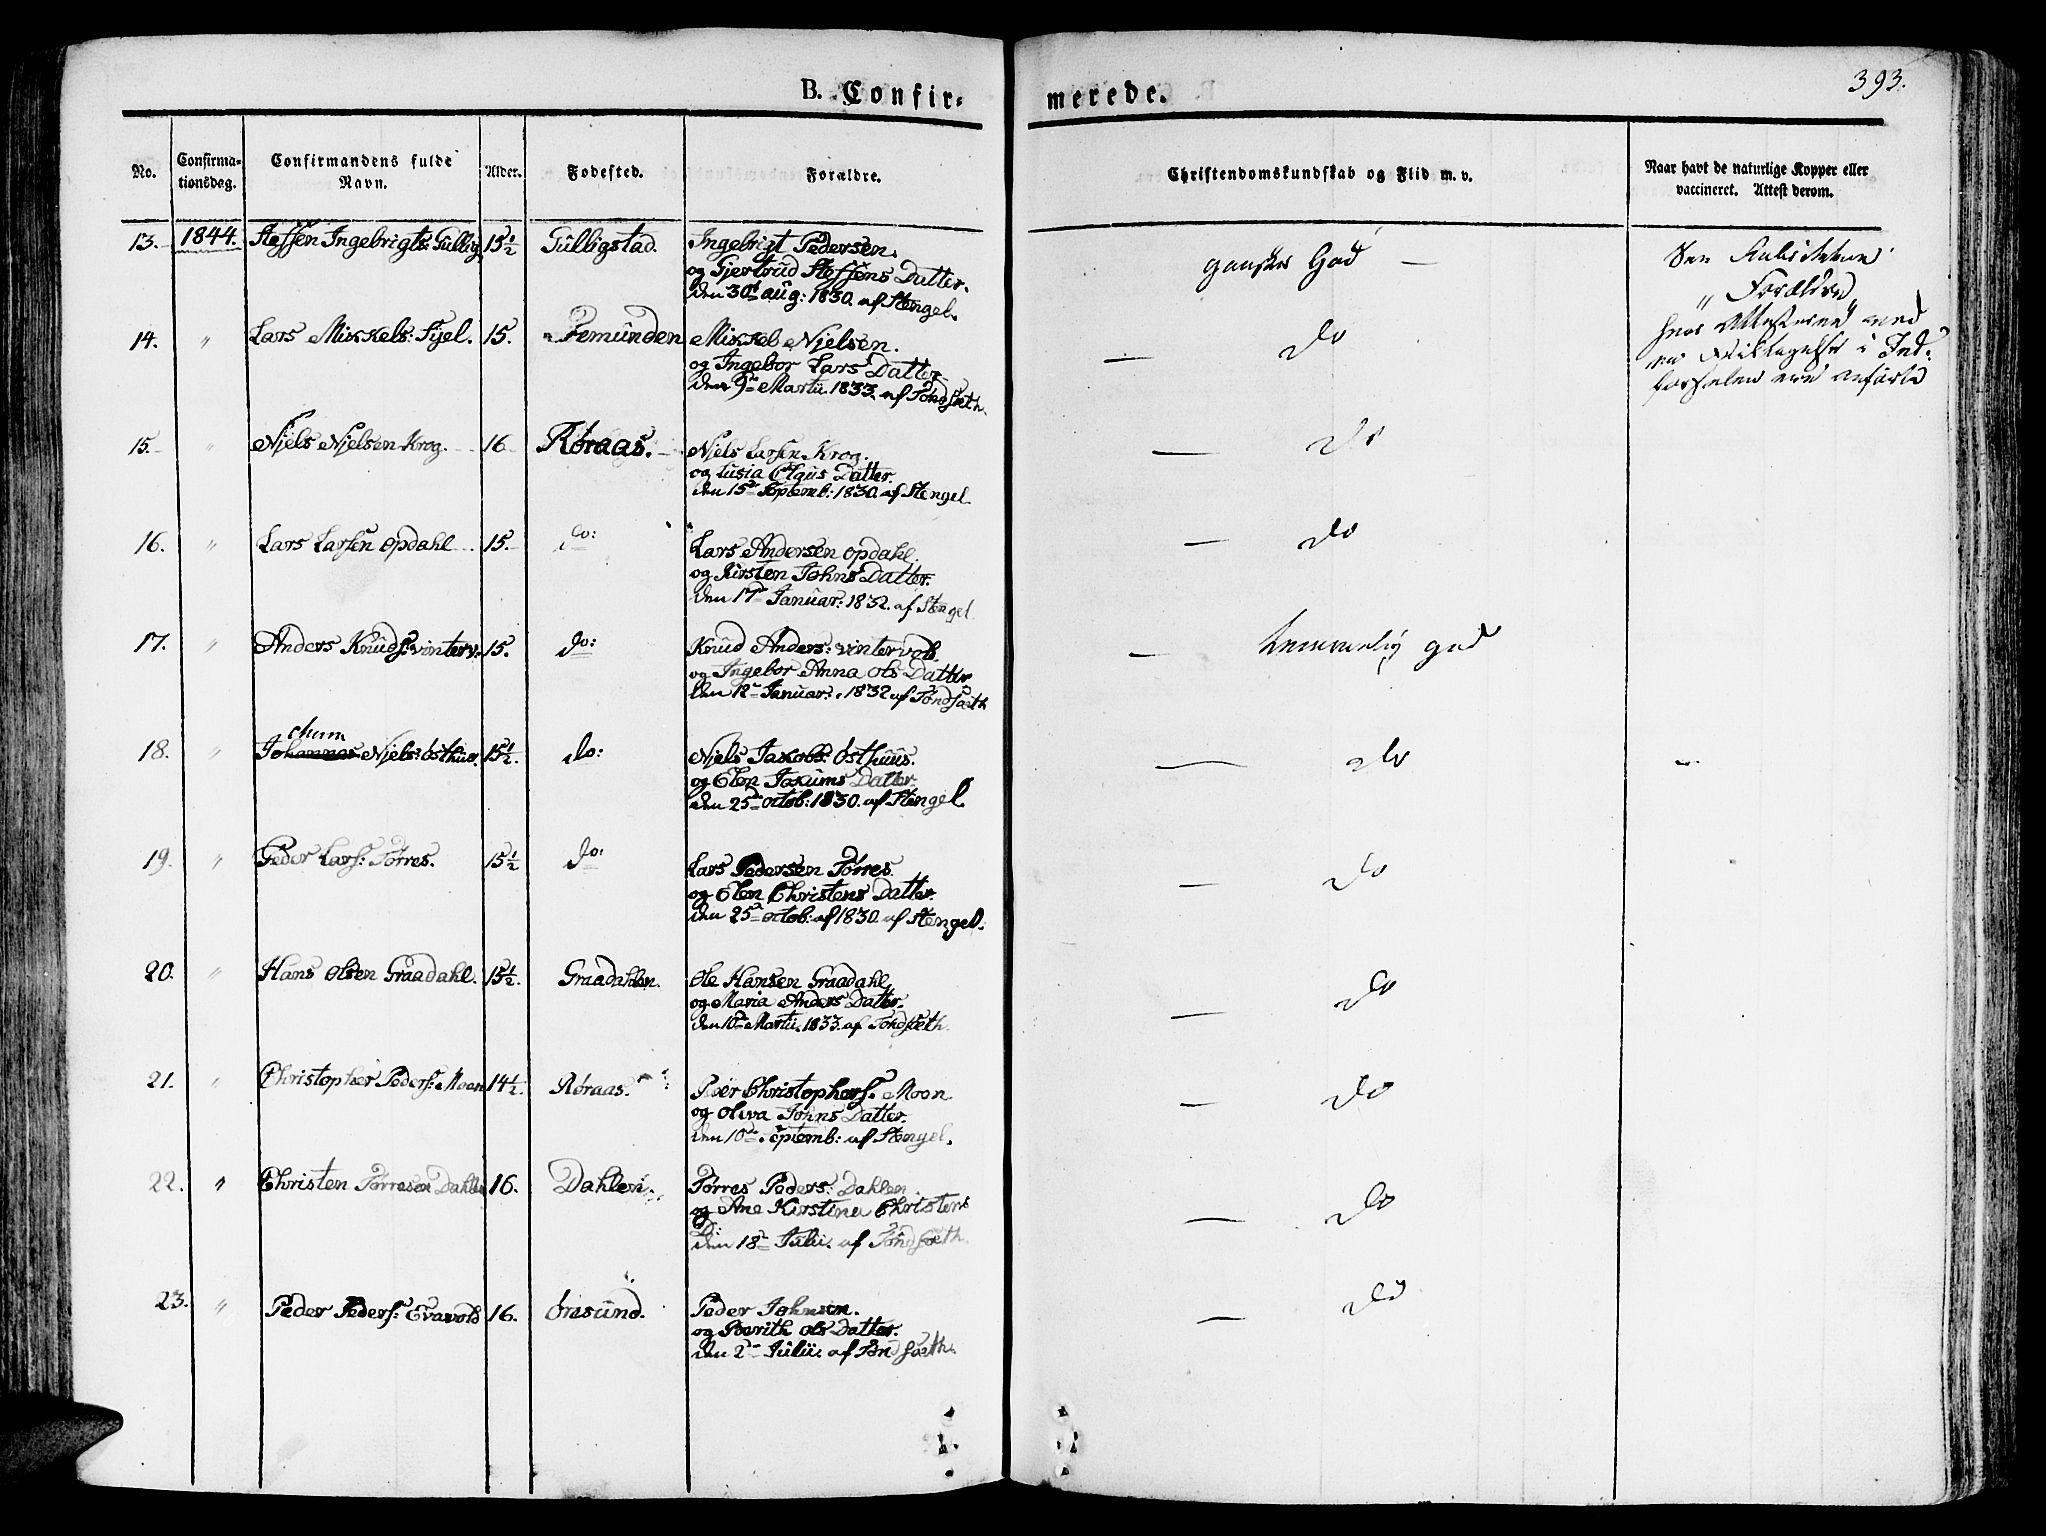 393.
B. Confir-
merede.
No.
Confirma-
tionsdag.
Confirmandens fulde
Navn.
Alder.
Fødested.
Forældre.
Christendomskundskab og Flid m. v.
Naar havt de naturlige Kopper eller
vaccineret. Attest derom.
13. 1844. Steffen Ingebrigts: Gullbig 15½ Gullbigstad. Ingebrigt Pedersen.
og Gjertrud Steffens Datter.
den 30t aug: 1830. af Stengel.
ganske God —
See Rubrikken
„ Forældre
hvor Attesterne ved
en i Ind-
ere anførte
14. " Lars Mikkels: Sijel. 15. Femunden Mikkel Njelsen.
og Ingebor Lars Datter
den 9de Martii 1833. af Tøndsæth.
— Do
15. " Njels Njelsen Krog. 16 Røraas. Njels Larsen Krog.
og Lusia Olaus Datter.
den 15de Septemb: 1830. af Stengel
— Do
16. " Lars Larsen Opdahl 15. do: Lars Andersen Opdahl
og Kirsten Johns Datter.
den 17de Januar: 1832. af Stengel.
— Do
17. " Anders Knuds: vinterv: 15. do: Knud Anders: vintervol
og Ingebor Anna Ols Datter
den 12te Januar: 1832 af Tøndsæth
— temmelig god
chum
18. " Johannes Njels: Østhuus. 15½. do: Njels Jakobs: Østhuus.
og Elen Jokums Datter
den 25de octob: 1830. af Stengel.
— do
19. " Peder Lars: Tørres. 15½ do: Lars Pedersen Tørres.
og Elen Christens Datter.
den 25de octob: af 1830. af Stengel.
— Do
20. " Hans Olsen Graadahl. 15½. Graadahlen. Ole Hansen Graadahl
og Maria Anders Datter.
den 10de Martii. 1833. af Tøndsæth.
— Do
21. " Christopher Peders: Moen 14½. Røraas. Peder Christophers: Moen
og Oliva Johns Datter.
den 10de Septemb: af Stengel.
— Do
22. " Christen Tørresen Dahlen 16. Dahlen. Tørres Peders: Dahlen
og Ane Kirstine Christens
D:
den 18de Julii. af Tøndsæth.
— Do
23. " Peder Peders: Evavold 16. Øresund. Peder Johnsen.
og Berith Ols Datter.
den 2de Julii. af Tøndsæth.
— Do